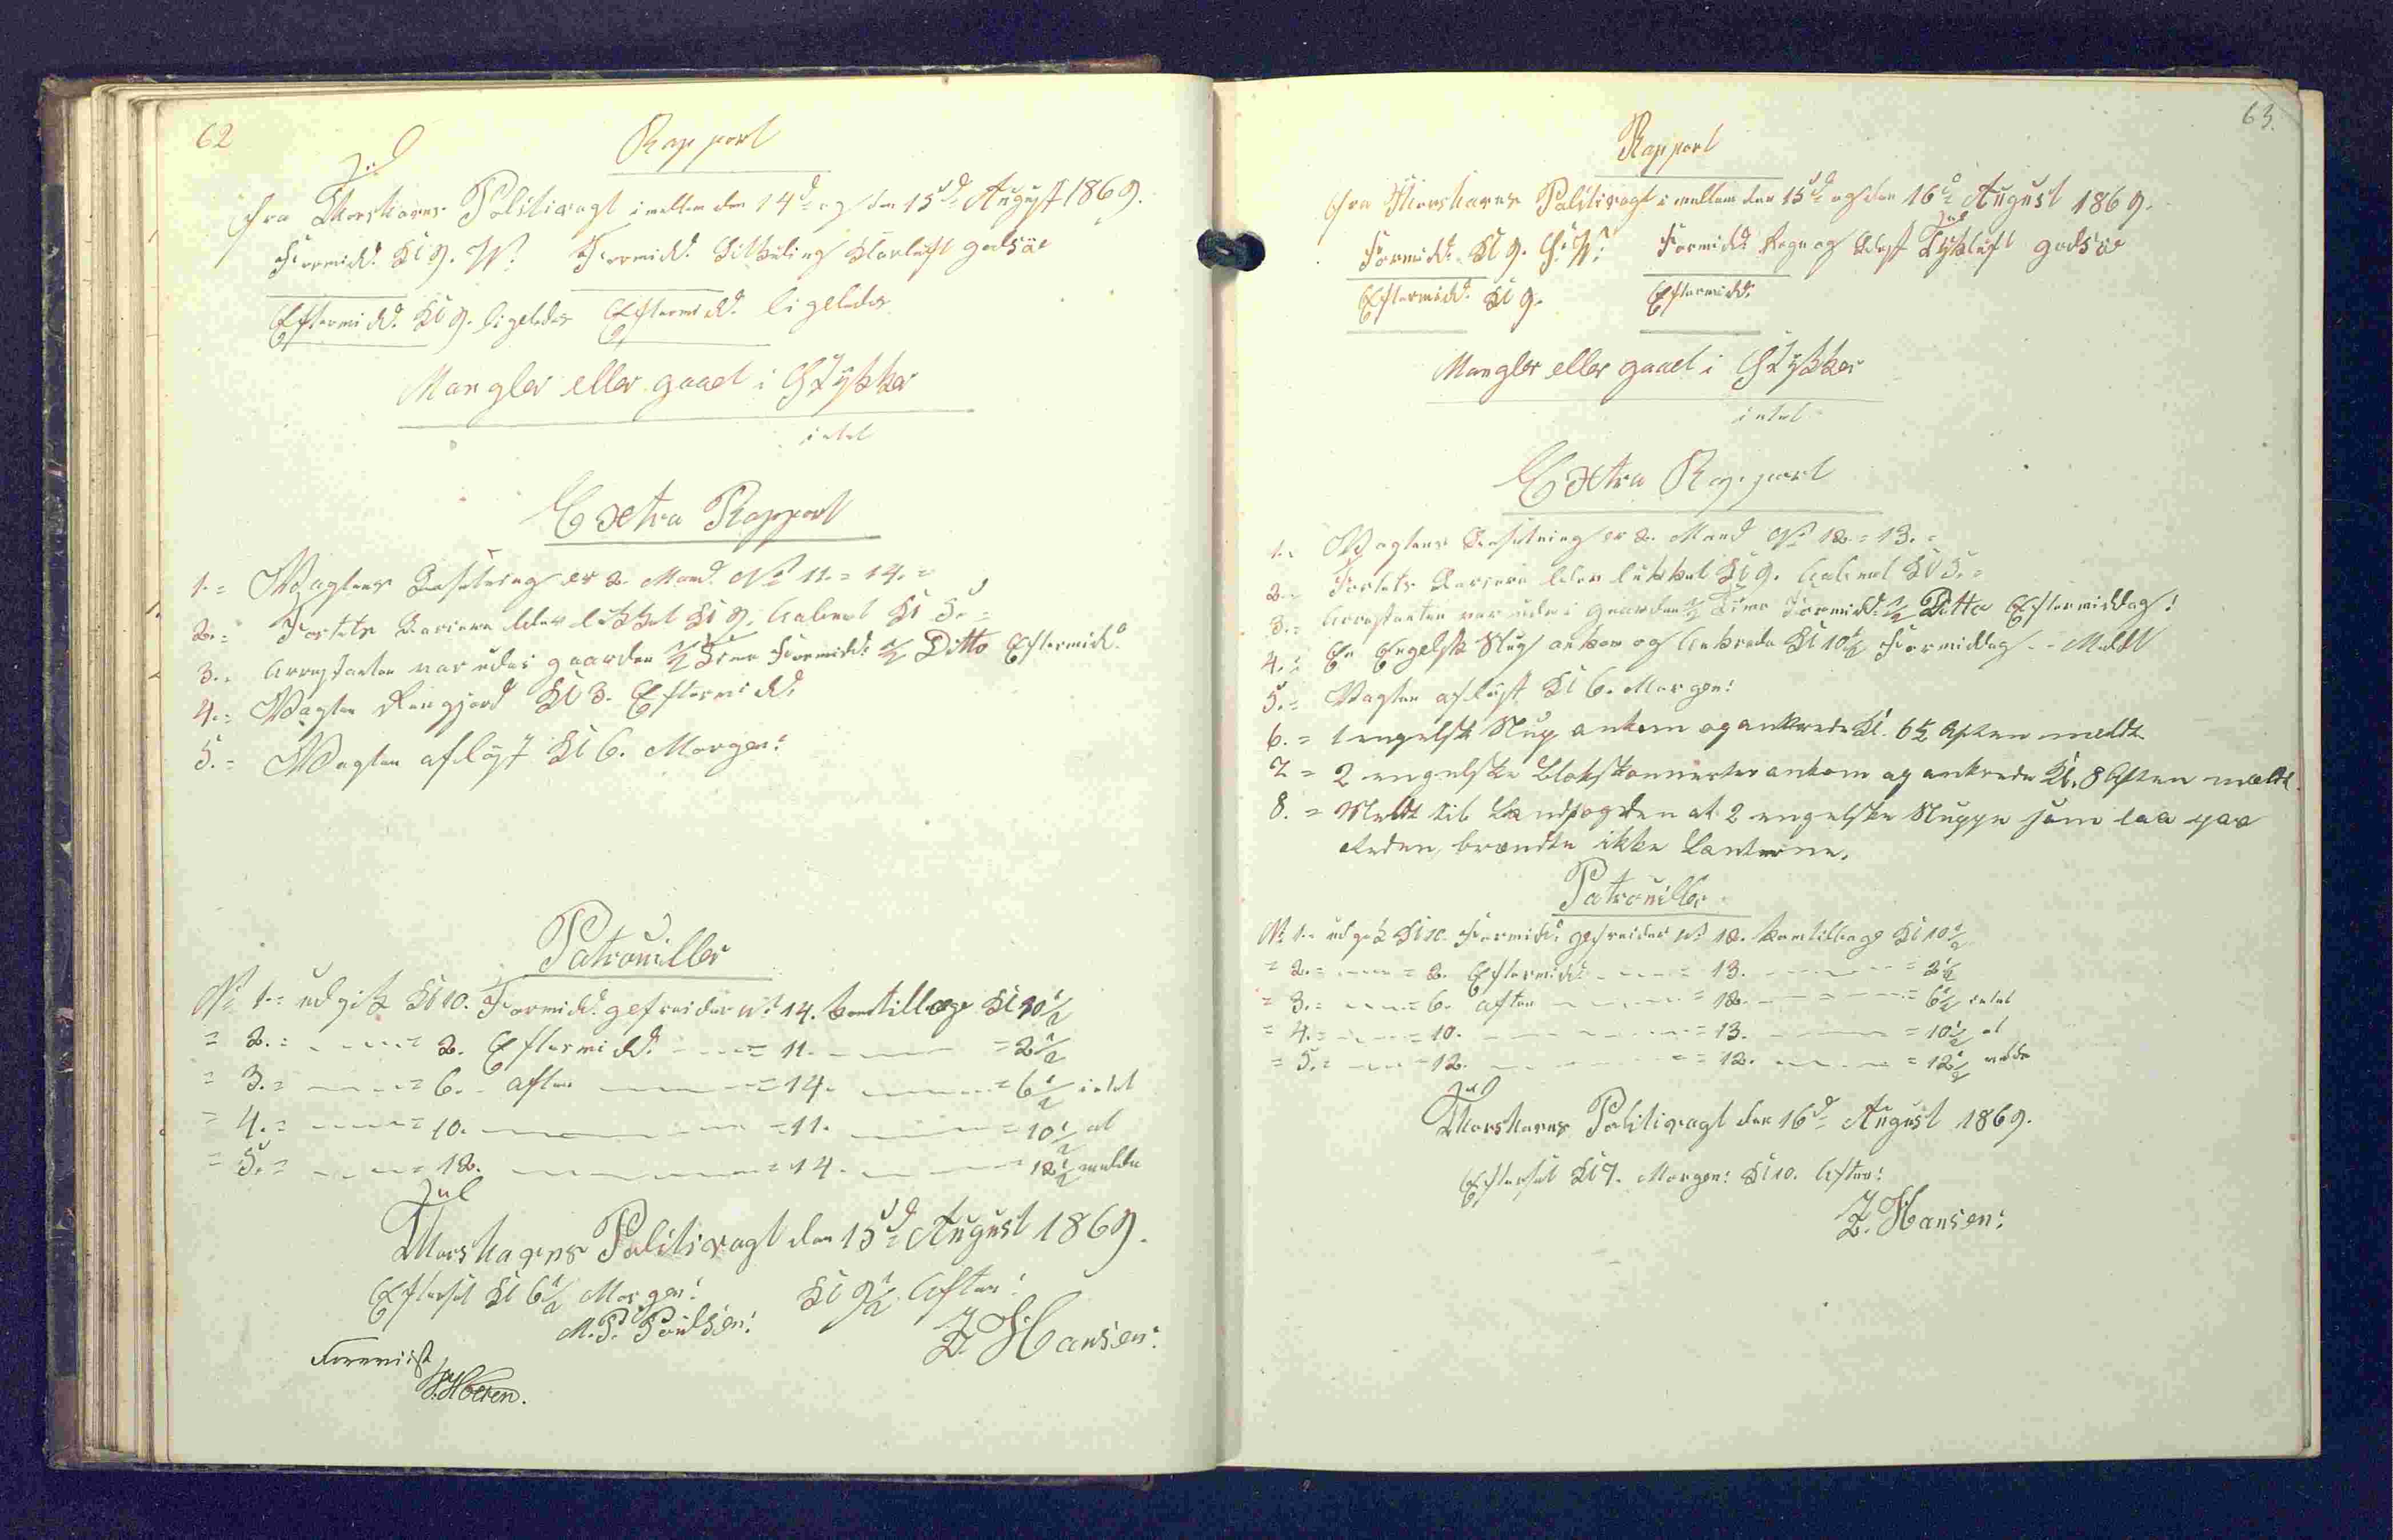 62
Rapport
Fra Thorshavns Politivagt imellem den 14d og den 15de August 1869.
Formidd. Kl 9. W. Formidd. Stilk Kuling Klarluft godsöe
Eftermidd. Kl 9. ligeledes Eftermidd. ligeledes
Mangler eller gaaet i Stÿkker
intet
Extra Rapport
1. = Vagtens Besetning er 2. Mand No 11. = 14. =
2. = Fortets Bariere blev lukket Kl 9. Aabnet Kl 5. =
3. = Arrestanten var ude i gaarden 1/2 Time Formidd. 1/2 Ditto Eftermidd.
4. = Vagten Rengjord Kl 3. Eftermidd.
5. = Vagten aflöst Kl 6. Morgen:
Patrouiller
No 1. = udgik Kl 10. Formidd. gefreider No 14. kom tillbage Kl 10 1/2
= 2. = = 2. Eftermidd. = 11. = 2 1/2
= 3. = = 6. aften = 14. = 6 1/2 intet
= 4. = = 10. = 11. = 10 1/2 at
= 5. = = 12. = 14. = 12 1/2 melde
Thorshavns Politivagt den 15de August 1869.
Efterset Kl 6 1/2 Morgen! Kl 9 1/2 Aften!
M. P. Poulsen! Z. Hansen:
Foreviist
63.
Rapport
Fra Thorshavns Politivagt imellem den 15de og den 16d August 1869.
Formidd. Kl 9. Formidd. Regn og Tÿkluft godsöe
Eftermidd. Kl 9. Eftermidd.
Mangler eller gaaet i Stÿkker
intet
Extra Rapport
1. = Vagtens Besetning er 2. Mand No 12. = 13. =
2. = Fortets Bariere blev lukket Kl 9. Aabnet Kl 5. =
3. = Arrestanten var ude i gaarden 1/2 Time Formidd. 1/2 Ditto Eftermiddag!
4. = En Engelsk Slup ankom og Ankrede Kl 10 1/2 Formiddag - - Meldt
5. = Vagten aflöst Kl 6. Morgen:
6. = 1 engelsk Slup ankom og ankrede Kl. 6 1/2 Aften meldt
7 = 2 engelske ankom og ankrede Kl. 8 Aften meldt.
8. = Meldt til Landfogden at 2 engelske Sluppe som laa paa
Reden, brændte ikke Lanterne.
Patrouiller
No 1. = udgik Kl 10. Formidd. gefreider No 12. kom tilbage Kl 10 1/2
= 2. = = 2. Eftermidd. = 13. = 2 1/2
= 3. = = 6. aften = 12. = 6 1/2 intet
= 4. = = 10. = 13. = 10 1/2 at
= 5. = = 12. = 12. = 12 1/2 melde
Thorshavns Politivagt den 16d August 1869.
Efterset Kl 7. Morgen: Kl 10. Aften:
Z. Hansen: